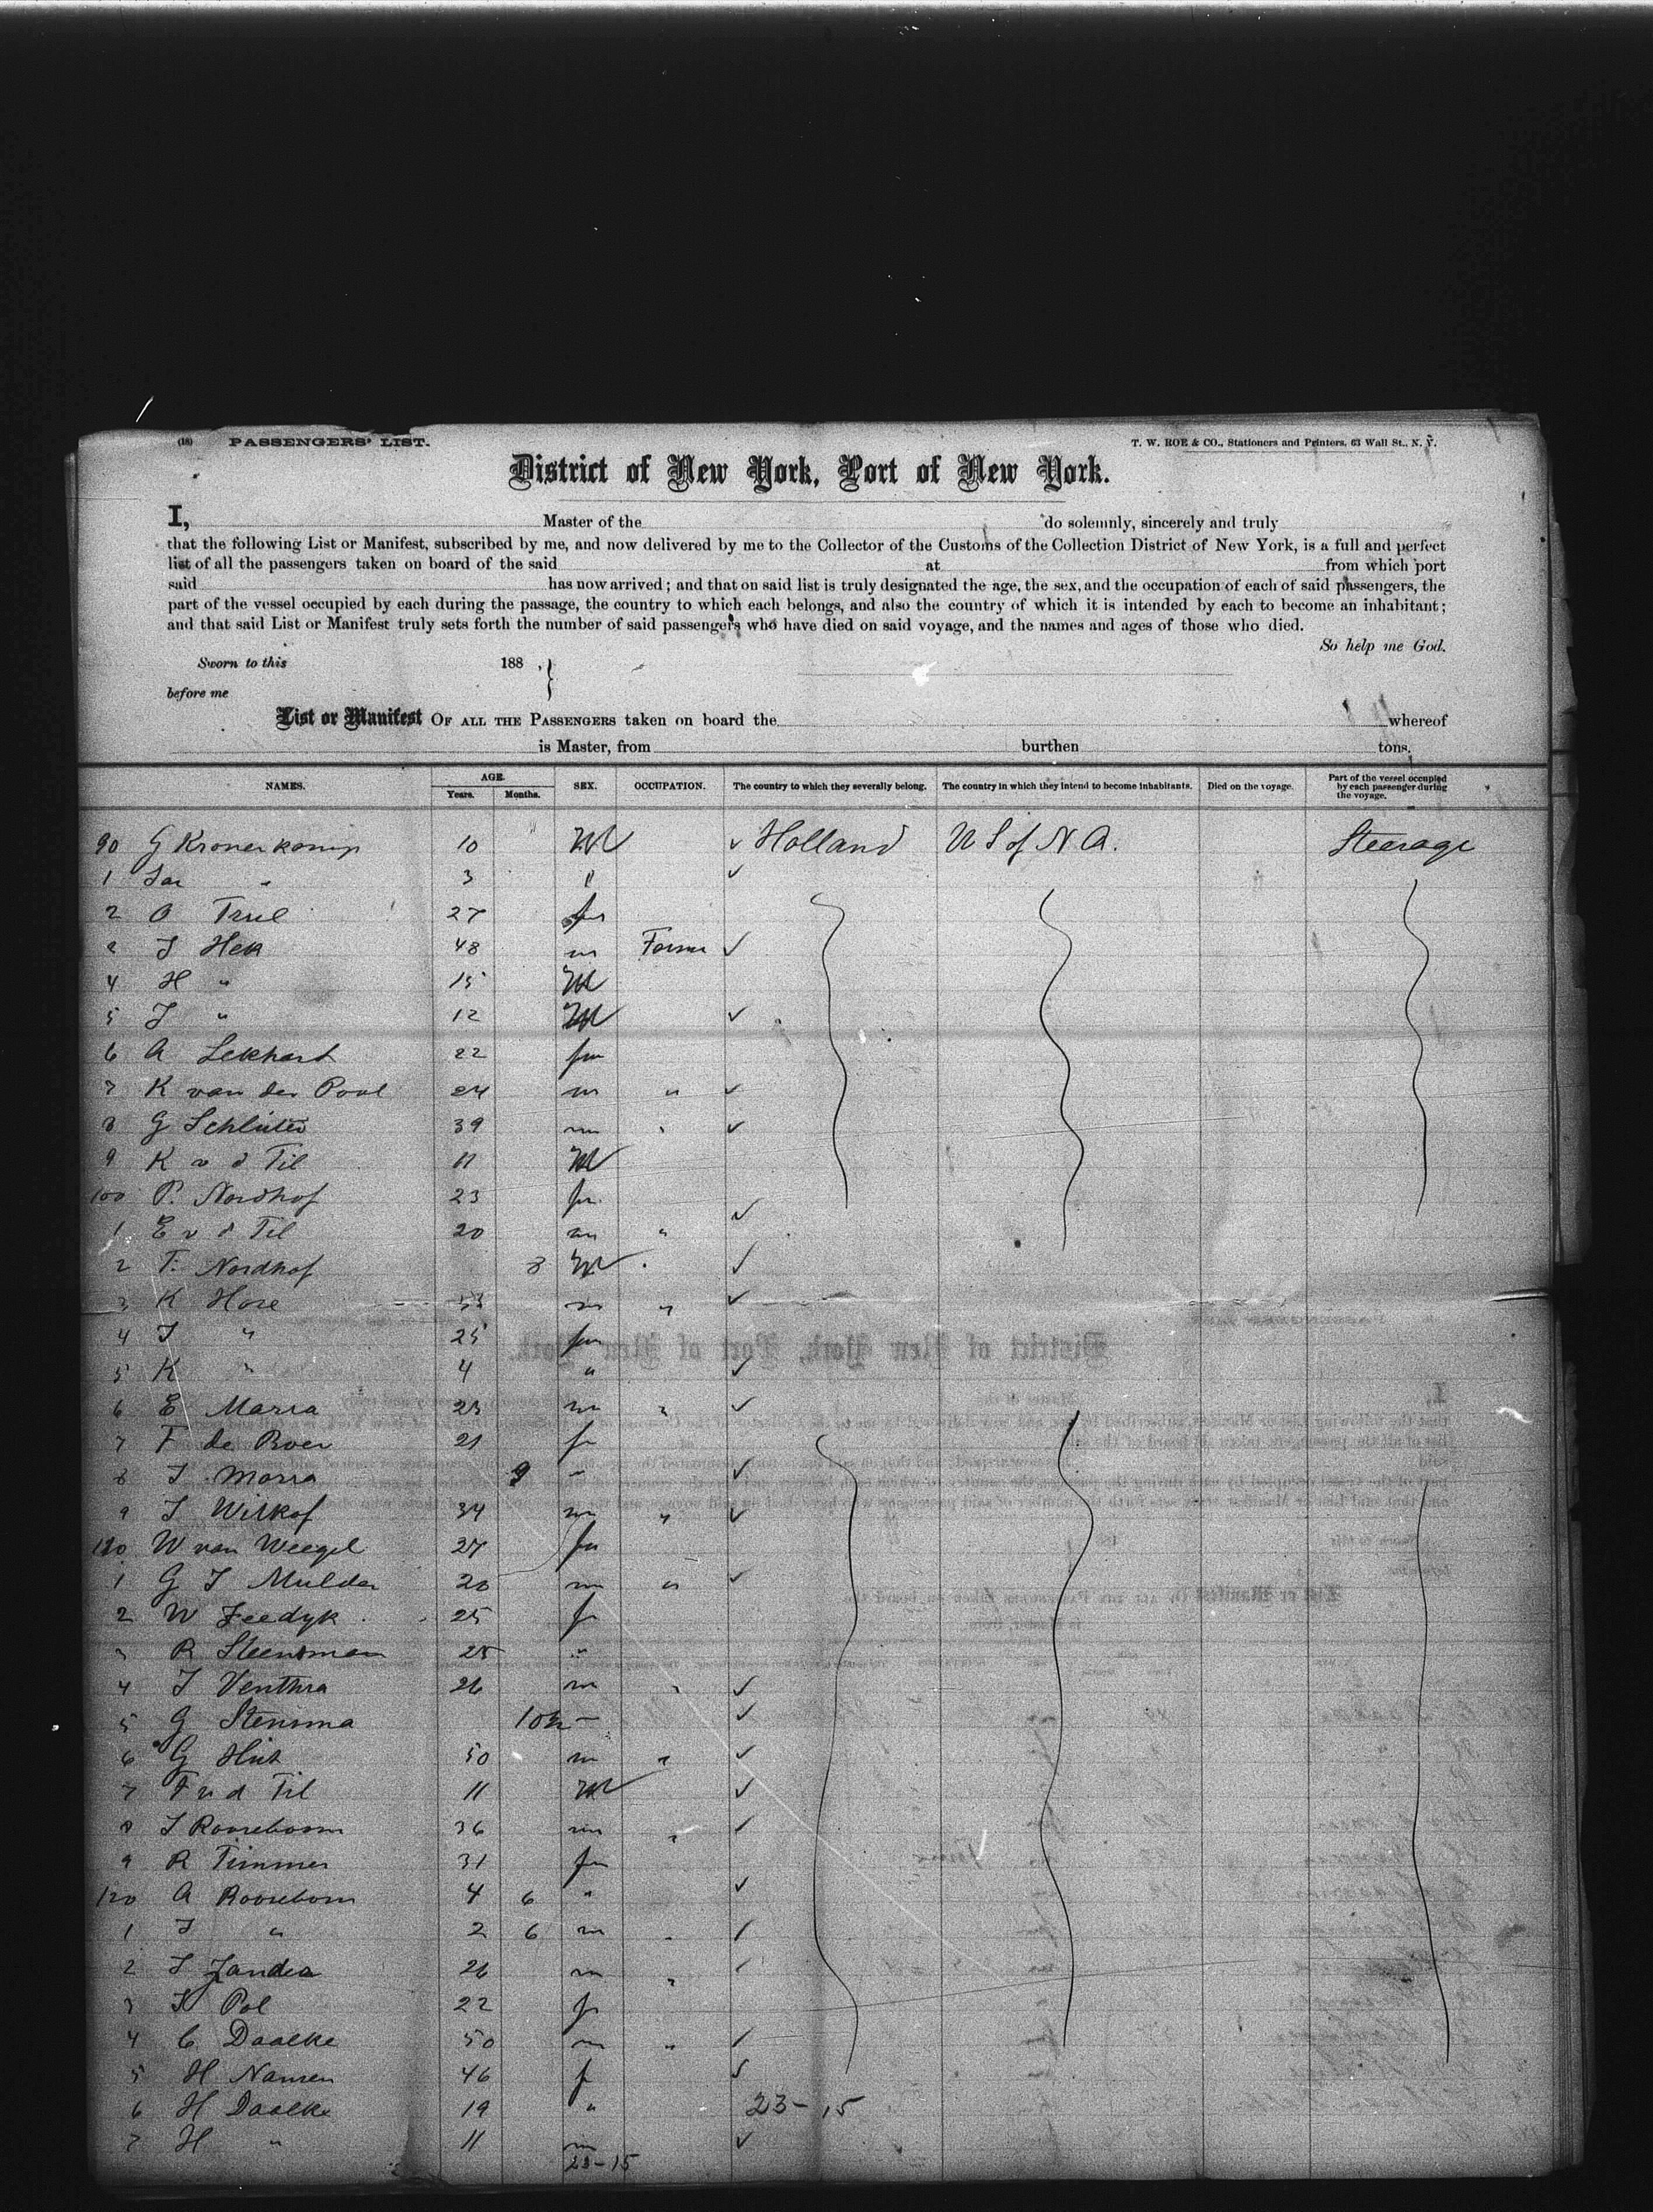 (18) PASSENGERS' LIST. T. W. ROE & CO., Stationers and Printers, 63 Wall St., N. Y.
District of New York, Port of New York.
I, Master of the do solemnly, sincerely and truly
that the following List or Manifest, subscribed by me, and now delivered by me to the Collector of the Customs of the Collection District of New York, is a full and perfect
list of all the passengers taken on board of the said at from which port
said has now arrived; and that on said list is truly designated the age, the sex, and the occupation of each of said passengers, the
part of the vessel occupied by each during the passage, the country to which each belongs, and also the country of which it is intended by each to become an inhabitant;
and that said List or Manifest truly sets forth the number of said passengers who have died on said voyage, and the names and ages of those who died.
So help me God.
Sworn to this 188 ,
before me
List or Manifest OF ALL THE PASSENGERS taken on board the whereof
is Master, from burthen tons.
NAMES. AGE. Years. Months. SEX. OCCUPATION. The country to which they severally belong. The country in which they intend to become inhabitants. Died on the voyage. Part of the vessel occupied by each passenger during the voyage.
90 G Kronenkamp 10 M ✓ Holland U S of N A. Steerage
1 Jar " 3 " ✓
2 O Truel 27 fm
3 J Hek 48 m Farmr ✓
4 H " 15 M
5 J " 12 M ✓
6 A Lekhart 22 fm
7 K van der Pool 24 m " ✓
8 G Schluter 39 m " ✓
9 K v d Til 11 M
100 P. Nordhof 23 fm
1 E v d Til 20 m " ✓
2 T. Nordhof 8 M ✓
3 K Hose 33 m " ✓
4 J " 25 fm
5 K " 4 " ✓
6 E Marra 23 m " ✓
7 F de Boer 21 f
8 J Marra 9 - ✓
9 J Wilkof 34 m " ✓
110 W van Weegel 27 fm
1 G J Mulder 20 m " ✓
2 W Feedyk 25 f
3 R Steensman 25 "
4 J Venthra 26 m " ✓
5 G Stensma 10 m - ✓
6 G Hut 50 m " ✓
7 F v d Til 11 M ✓
8 J Rooseboom 36 m " ✓
9 R Timmer 31 fm
120 A Rooseboom 4 6 " ✓
1 J " 2 6 m ✓
2 J Zandea 26 m " ✓
3 K Pol 22 f
4 C Daalke 50 m " ✓
5 H Namen 46 f ✓
6 H Daalke 19 " 23-15
7 H " 11 m ✓
23-15